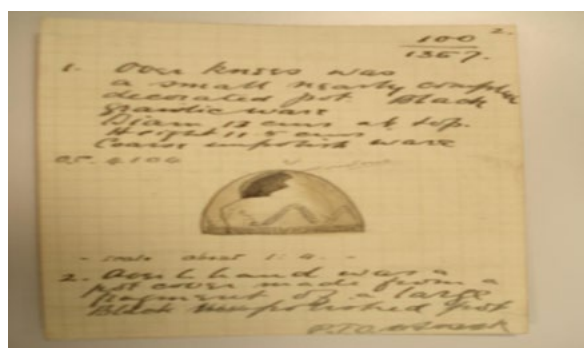 2.
100
1367.
1. Over knees was
a small nearly complete
decorated pot Black
granitic ware
Diam 13 cms at top.
Height 11.5 cms
Coarse unpolish ware
05.4.104
- scale about 1:4. -
2. Over L hand was a
pot cover made from a
fragment of a large
Black unpolished pot
P.T.O.